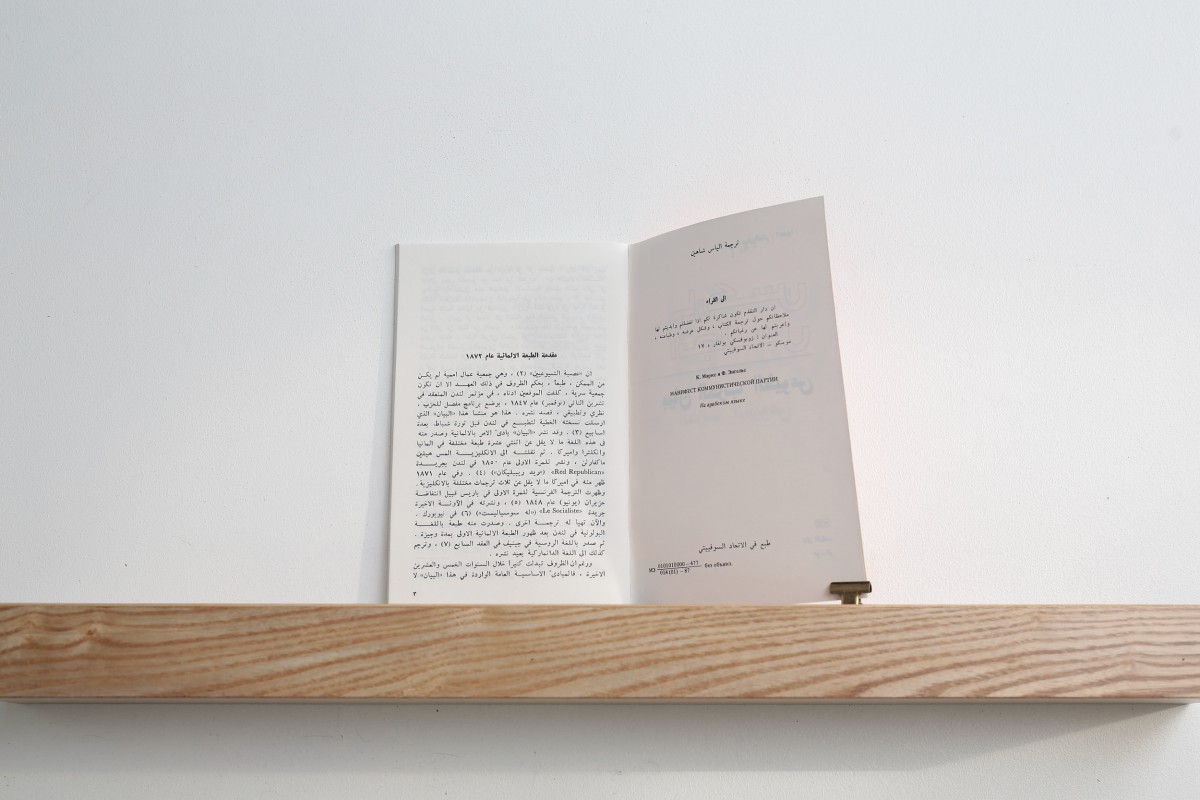 ترجمة الياس شاهين
الى القراء
ان دار التقدم تكون شاكرة لكم اذا تفضلتم وابديتم لها
ملاحظاتكم حول ترجمة الكتاب ، وشكل عرضه ، وطباعته ،
واعربتم لها عن رغباتكم .
العنوان : زوبوفسكي بولفار ، ١٧
موسكو – الاتحاد السوفييتي
К. Маркс и Ф. Энгельс
МАНИФЕСТ КОММУНИСТИЧЕСКОЙ ПАРТИИ
На арабском языке
طبع في الاتحاد السوفييتي
0101010000 – 477
МЭ без объявл.
014(01) – 87
مقدمة الطبعة الالمانية عام ١٨٧٢
ان «عصبة الشيوعيين» (٢) ، وهي جمعية عمال اممية لم يكن
من الممكن ، طبعا ، بحكم الظروف في ذلك العهد الا ان تكون
جمعية سرية ، كلفت الموقعين ادناه ، في مؤتمر لندن المنعقد في
تشرين الثاني (نوفمبر) عام ١٨٤٧ ، بوضع برنامج مفصل للحزب ،
نظري وتطبيقي ، قصد نشره . هذا هو منشأ هذا «البيان» الذي
ارسلت نسخته الخطية لتطبع في لندن قبل ثورة شباط بعدة
اسابيع (٣) . وقد نشر «البيان» بادئ الامر بالالمانية وصدر منه
في هذه اللغة ما لا يقل عن اثنتي عشرة طبعة مختلفة في المانيا
وانكلترا واميركا . ثم نقلته الى الانكليزية المس هيلين
ماكفارلن ، ونشر للمرة الاولى عام ١٨٥٠ في لندن بجريدة
«Red Republican» («ريد ريببليكان») (٤) . وفي عام ١٨٧١
ظهر منه في اميركا ما لا يقل عن ثلاث ترجمات مختلفة بالانكليزية .
وظهرت الترجمة الفرنسية للمرة الاولى في باريس قبيل انتفاضة
حزيران (يونيو) عام ١٨٤٨ (٥) ، ونشرته في الآونة الاخيرة
جريدة «Le Socialiste» («له سوسياليست») (٦) في نيويورك .
والآن تهيأ له ترجمة اخرى . وصدرت منه طبعة باللغة
البولونية في لندن بعد ظهور الطبعة الالمانية الاولى بمدة وجيزة .
ثم صدر باللغة الروسية في جينيف في العقد السابع (٧) ، وترجم
كذلك الى اللغة الدانماركية بعيد نشره .
ورغم ان الظروف تبدلت كثيرا خلال السنوات الخمس والعشرين
الاخيرة ، فالمبادئ الاساسية العامة الواردة في هذا «البيان» لا
٣